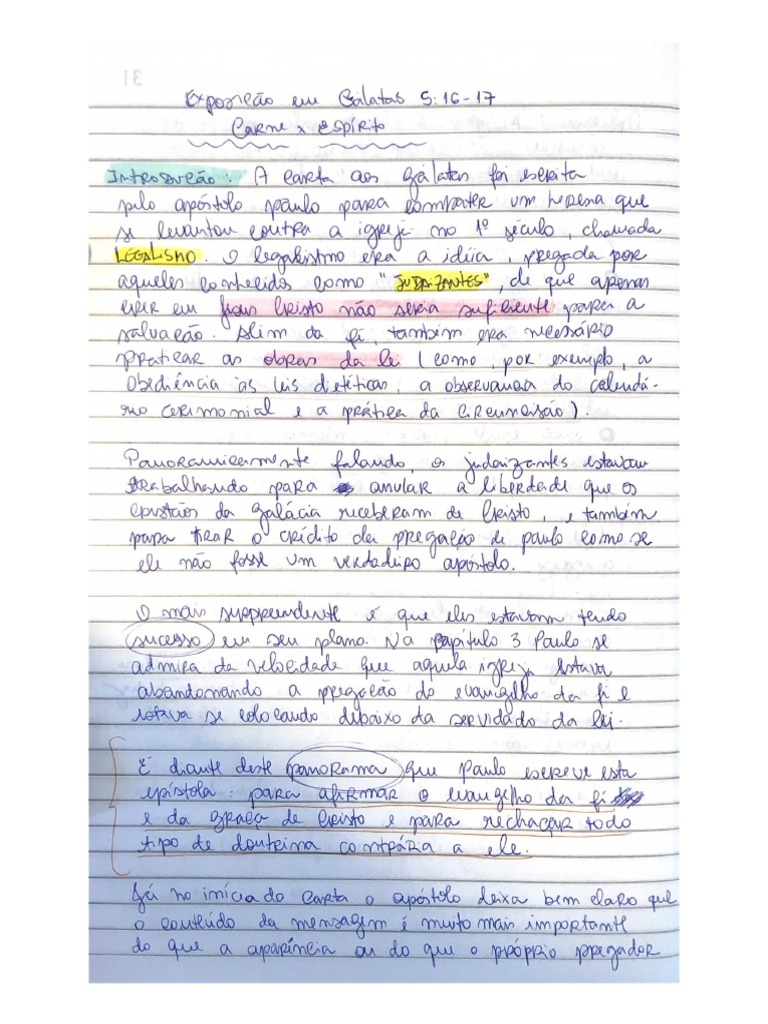 31
Exposição em Gálatas 5:16-17
Carne x Espírito
Introdução: A carta aos gálatas foi escrita
pelo apóstolo Paulo para combater um heresia que
se levantou contra a igreja no 1º século, chamada
LEGALISMO. O legalistmo era a idéia, pregada por
aqueles conhecidos como "JUDAIZANTES", de que apenas
crer em Jesus Cristo não seria suficiente para a
salvação. Além da fé, também era necessário
praticar as obras da lei (como, por exemplo, a
obediência às leis dietéticas, a observanda do calendá-
rio cerimonial e a prática da circuncisão).
Panoramicamente falando, os judaizantes estavam
trabalhando para anular a liberdade que os
cristãos da galácia receberam de Cristo, e também
para tirar o crédito da pregação de paulo como se
ele não fosse um verdadeiro apóstolo.
O mais surpreendente é que eles estavam tendo
sucesso em seu plano. Na capítulo 3 Paulo se
admira da velocidade que aquela igreja estava
abandonando a pregação do evangelho da fé e
estava se colocando debaixo da servidado da lei.
É diante deste panorama que Paulo escreve esta
epístola: para afirmar o evangelho da fé
e da graça de Cristo e para rechaçar todo
tipo de doutrina contrária a ele.
Já no início da carta o apóstolo deixa bem claro que
o conteúdo da mensagem é muito mais importante
do que a aparência ou do que o próprio pregador